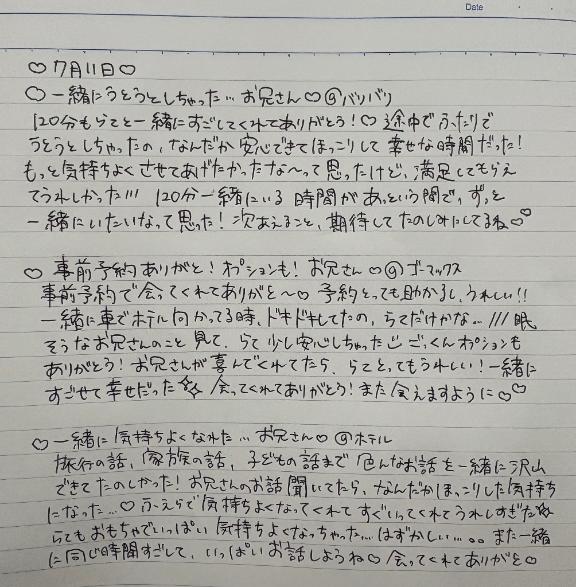 Date
♡7月11日♡
♡一緒にうとうとしちゃった… お兄さん♡@バリバリ
120分もらてと一緒にすごしてくれてありがとう!♡ 途中でふたりで
うとうとしちゃったの、なんだか安心できてほっこりして幸せな時間だった!
もっと気持ちよくさせてあげたかったな〜って思ったけど、満足してもらえ
てうれしかった!!! 120分一緒にいる時間があっという間で、ずっと
一緒にいたいなって思った! 次あえること、期待してたのしみにしてるね♡♡
♡ 事前予約ありがと! オプションも! お兄さん♡@ゴーマックス
事前予約で会ってくれてありがと〜♡ 予約とっても助かるし、うれしい!!
一緒に車でホテル向かってる時、ドキドキしてたの、らてだけかな…/// 眠
そうなお兄さんのこと見て、らて少し安心しちゃった ごっくんオプションも
ありがとう! お兄さんが喜んでくれてたら、らてとってもうれしい! 一緒に
すごせて幸せだった 会ってくれてありがとう! また会えますように♡♡
♡一緒に気持ちよくなれた… お兄さん♡@ホテル
旅行の話、家族の話、子どもの話まで色んなお話を一緒に沢山
できてたのしかった! お兄さんのお話聞いてたら、なんだかほっこりした気持ち
になった…♡ ふぇらで気持ちよくなってくれてすぐいってくれてうれしすぎた
らてもおもちゃでいっぱい気持ちよくなっちゃった…はずかしい…。。また一緒
に同じ時間すごして、いっぱいお話しようね♡ 会ってくれてありがと♡